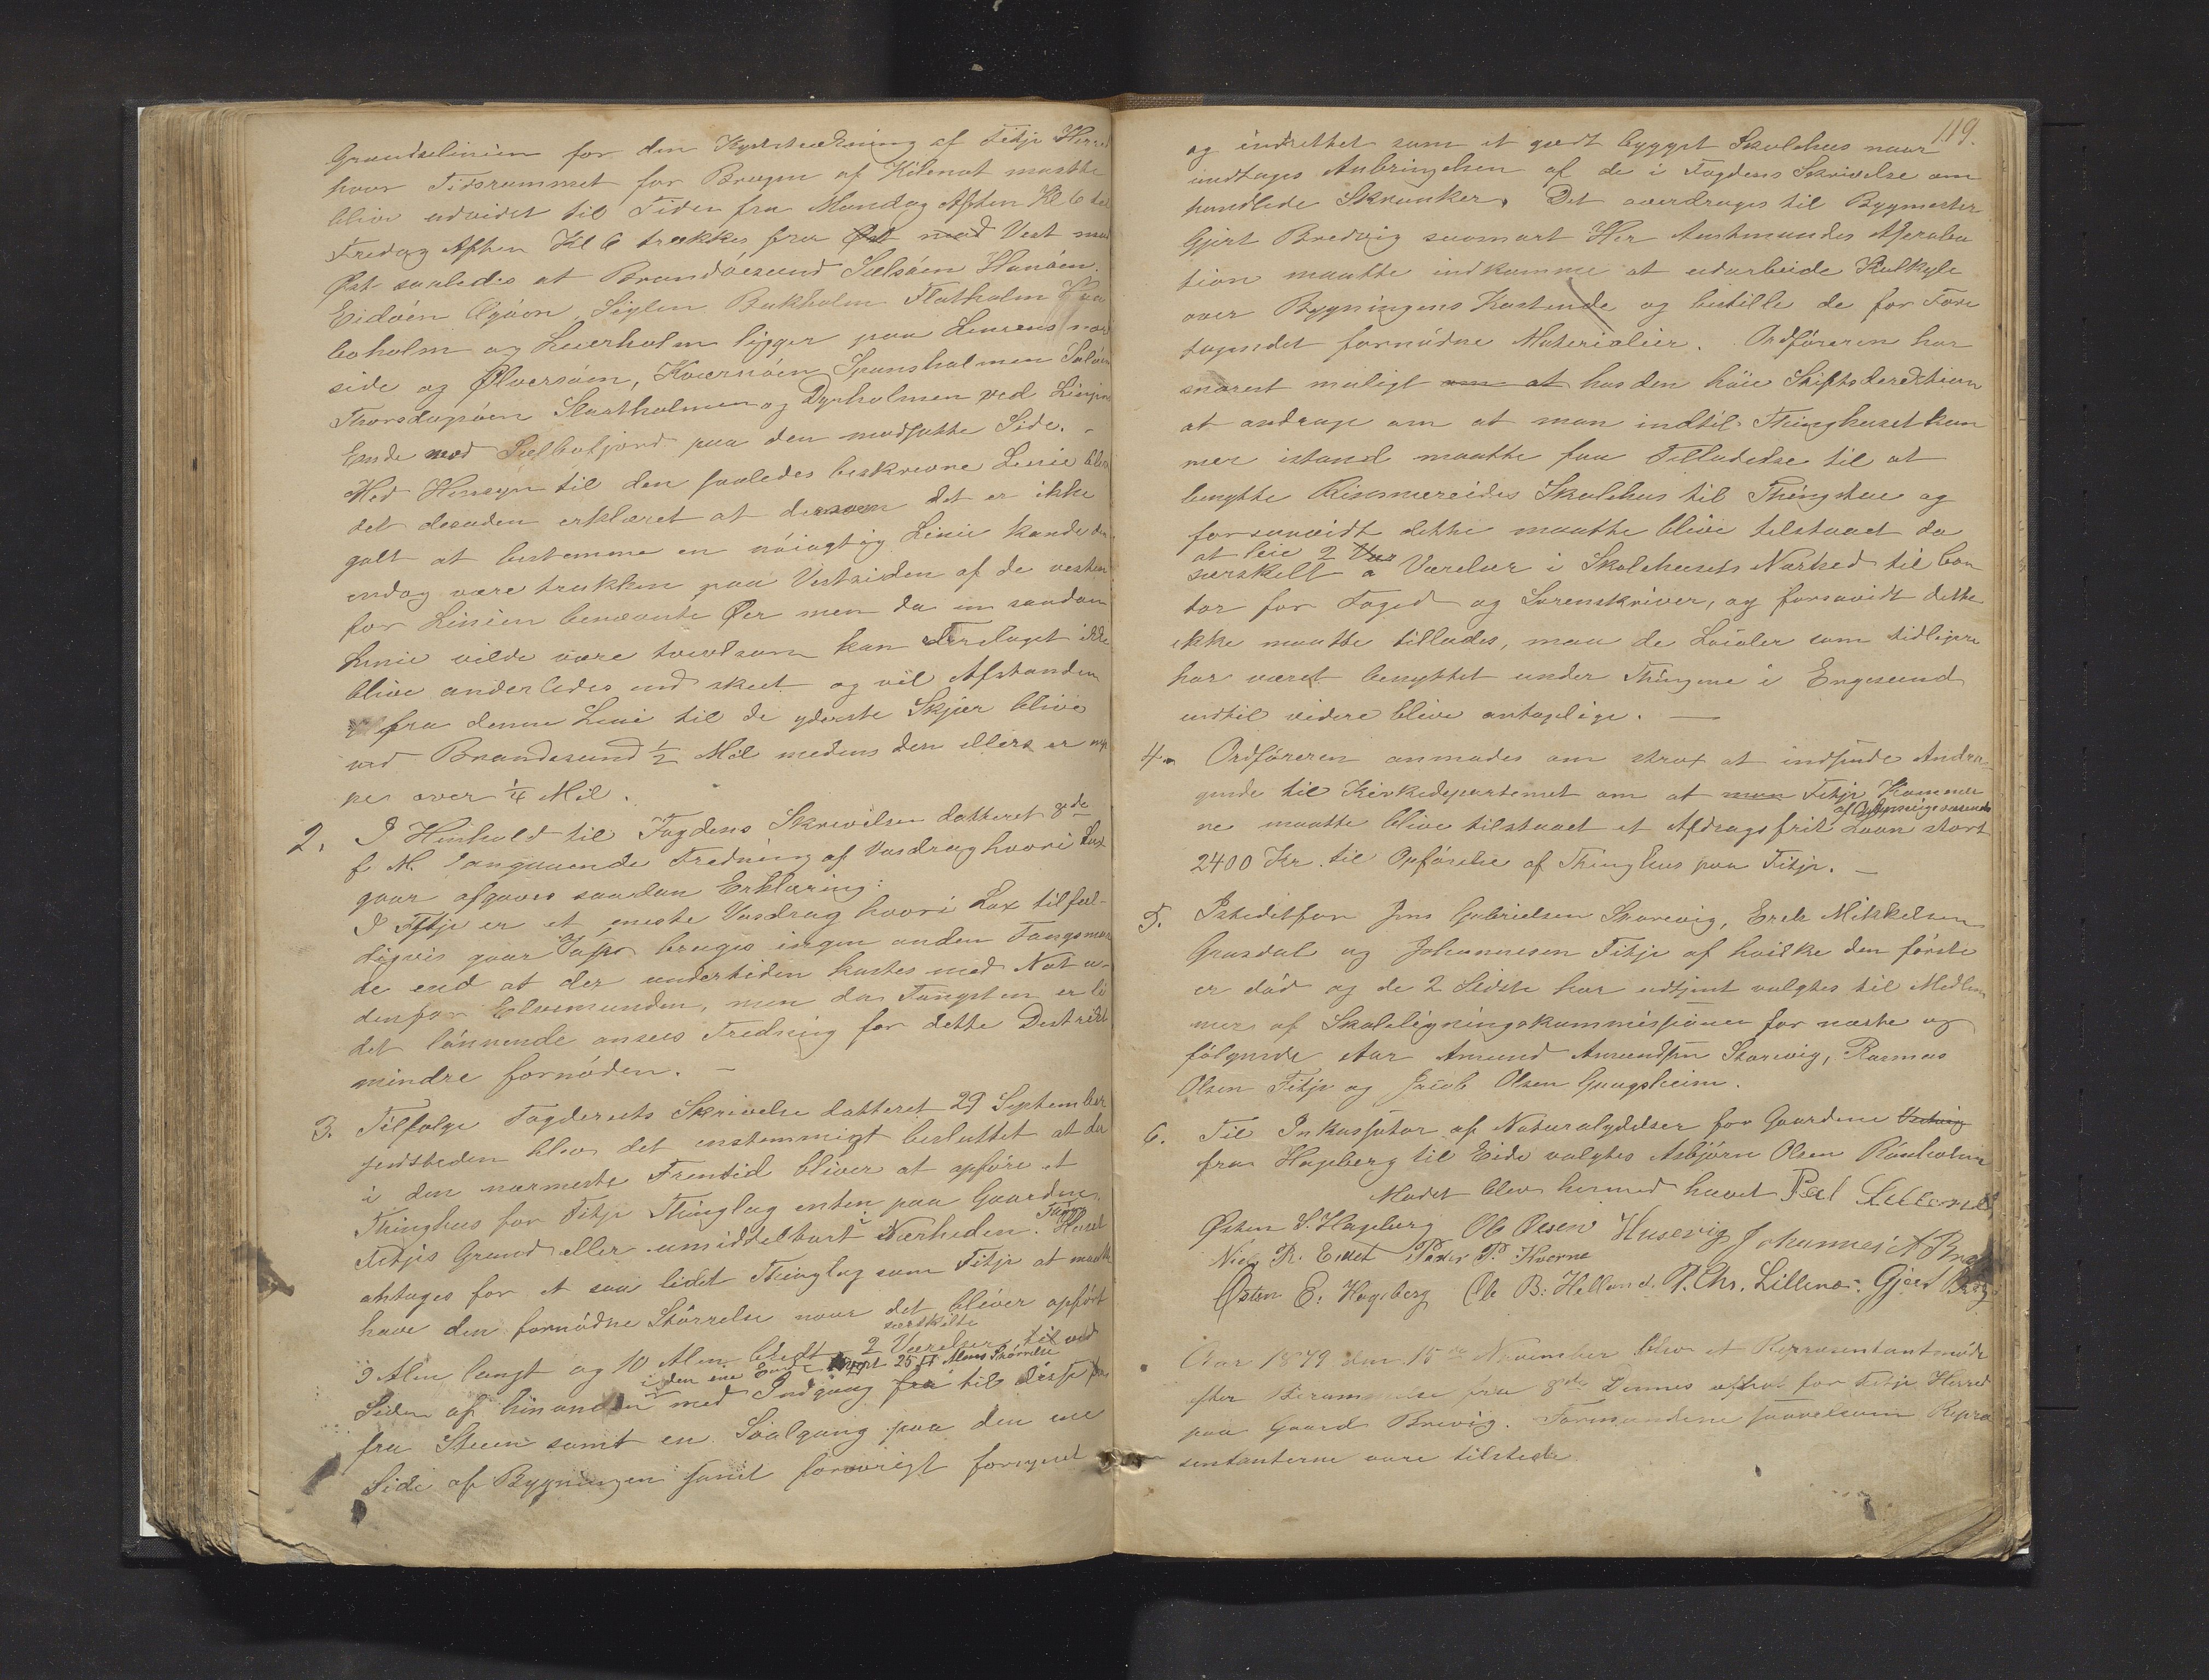 Grændselinien for den Kyststrækning af Fitje Herred
hvor Tidsrummet for Brugen af Kilenot maatte
blive udvidet til Tiden fra Mandag Aften Kl 6 til
Fredag Aften Kl 6 trækkes fra Øst mod Vest mod
Øst saaledes at Brandøesund Sælsøen Hanøen
Eidøen Agøen, Siglen Bukholm Flatholm
boholm og Luerholm ligger paa Liniens nord
side og Ølversøen, Kværnøen Spansholmen Seløen
Thorsdagsøen Slastholmen og Dyrholmen ved Liniens
Ende mod Selbotfjord paa den modsatte Side. -
Med Hensyn til den saaledes beskrevne Linie blev
det desuden erklæret at dersom det er ikke
galt at bestemme en nøiagtig Linie kunde den
endog være trukken paa Vestsiden af de vesten
for Linien benævnte Øer men da en saadan
Linie vilde være tvivlsom kan Forslaget ikke
blive anderledes end skeet og vil Afstanden
fra denne Linie til de yderste Skjær blive
ved Brandesund ½ Mil medens den ellers er nep
pe over ¼ Mil.
2. I Henhold til Fogdens Skrivelse datteret 9de
f M. angaaende Fredning af Vasdrag hvori Lax
gaar afgaves saadan Erklæring:
I Fitje er et eneste Vasdrag hvori Lax tilfæl-
digvis gaar Vaso bruges ingen anden Fangsmaa
de end at der undertiden kastes med Not u-
denfor Elvemunden, men da Fangsten er li
det lønnende ansees Fredning for dette Destrikt
mindre fornøden. -
3. Tilfølge Fogderiets Skrivelse datteret 29 September
sidstleden blev det enstemmigt besluttet at der
i den nærmeste Fremtid bliver at opføre et
Thinghus for Fitje Thinglag enten paa Gaarden
Fitjes Grund eller umiddelbart i Nærheden. Thing Huset
antages for et saa lidet Thinglag som Fitje at maatte
have den fornødne Størrelse naar det bliver opført
9 Alen langt og 10 Alen bredt 2 særskilte Værelser til ved
i den ene Ende hvert 25 □ Alens Størrelse
Siden af hinanden med Indgang fra til disse
fra Stuen samt en Svalgang paa den ene
Side af Bygningen samt forøvrigt forsynet
119.
og indrettet som et godt bygget Skolehus naar
undtages Anbringelsen af de i Fogdens Skrivelse om
handlede Skranker. Det overdrages til Bygmester
Gjert Bredvig saasnart Her Amtmandes Aproba
tion maatte indkomme at udarbeide Kalkyle
over Bygningens Kostende og bestille de for Fore
tagendet fornødne Materialier. Ordføreren har
snarest muligt om at hos den høie Stiftsderektion
at andrage om at man indtil Thinghuset kom
mer istand maatte faa Tilladelse til at
benytte Rimmereides Skolehus til Thingstue og
forsaavidt dette maatte blive tilstaaet da
at leie 2 Vær
særskilt a Værelser i Skolehusets Nærhed til Con
tor for Foged og Sorenskriver, og forsavidt dette
ikke maatte tillades, maa de Localer som tidligere
har været benyttet under Thingene i Engesund
indtil videre blive antagelige. —
4. Ordføreren anmodes om strax at indsende Andra-
gende til Kirkedepartemet om at man Fitje Kommu
ne maatte blive tilstaaet et Afdragsfrit Laan af Oplysningsvæsenets stort
2400 Kr. til Opførelse af Thinghus paa Fitje. —
5. Istedetfor Jens Gabrielsen Storevig, Erek Mikkelsen
Grasdal og Johannesen Fitje af hvilke den første
er død og de 2 Sidste har udtjent valgtes til Medlem
mer af Skoleligningskommissionen for næste og
følgende Aar Amund Amundsen Storevig, Rasmus
Olsen Fitje og Jacob Olsen Gaugsheim.
6. Til Inkassator af Naturalydelser for Gaardene Vestvig
fra Hageberg til Eide valgtes Asbjørn Olsen Rønholm
Mødet blev hermed hævet Pel Lillenes
Østen S. Hageberg Ole Olsen Husevig Johannes A Bred
Niels R. Eidet Peder P. Tværne
Østen E. Hageberg Ole B. Helland. P. Chr. Lillenes. Gjert Bredvig
Aar 1879 den 15de November blev et Repræsentantmøde
efter Berammelse fra 8de Dennes afholt for Fitje Herred
paa Gaard Brevig. Formændene saavelsom Repræ
sentanterne vare tilstede